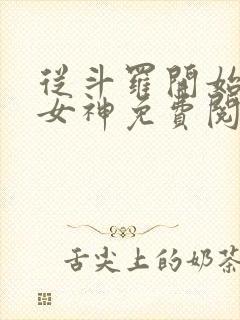 從斗羅開始
女神免費閱
舌尖上的奶茶